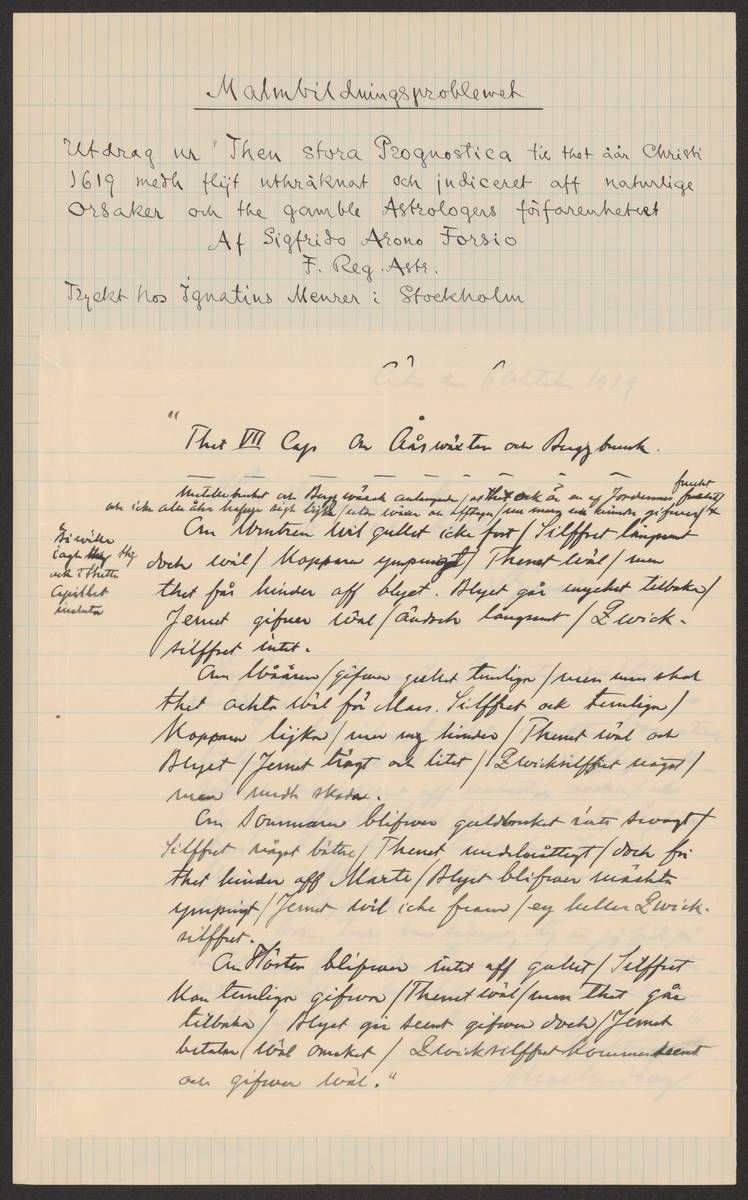 Malmbildningsproblemet
Utdrag ur "Then stora Prognostica til thet åår Christi
1619 medh flijt uthräknat och judiceret aff naturlige
Orsaker och the gamble Astrologers förfarenheter
Af Sigfrido Arono Forsio
F. Reg. Astr.
Tryckt hos Ignatius Meurer i Stockholm
"
Thet VII Cap Om Åårswäxten och Bergzbruuk.
och icke alla åhr
Om Wintren wil gullet icke fort / Silffret långsamt
doch wäl / Kopparen ympnigt / Thenet wäl / men
thet får hinder aff blyet. Blyet går mycket tilbaka /
Jernet gifwer wäl / ändoch långsamt / Qwick-
silffret intet.
Om Wååren / gifwer gullet temliga / men man skal
thet achta wäl för Mars. Silffret ock temliga /
Kopparen lijka / men hinder / Thenet wäl och
Blyet / Jernet trögt och litet / Qwicksilffret något /
men medh skada.
Om Sommaren blifwer guldbruket swagt /
Silffret något bättre / Thenet medelmåttigt / doch får
thet hinder aff Marte / Blyet blifwer
ympnigt / Jernet wil icke fram / ey heller Qwick-
silffret.
Om Hösten blifwer intet aff gullet / Silffret
kan temliga gifwa / Thenet wäl / men thet går
tilbaka / Blyet går seent gifwer doch / Jernet
betalar wäl omaket / Qwicksilffret kommer seent
och gifwer wäl."